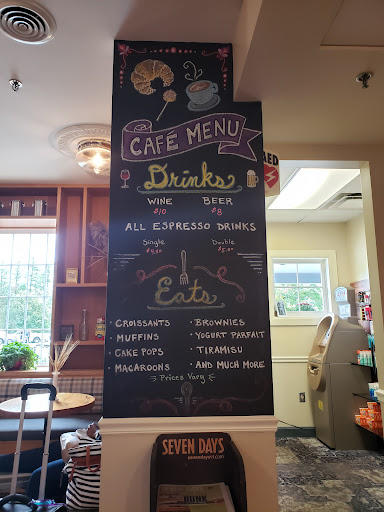 CAFÉ MENU
Drinks
WINE BEER
$10 $8
ALL ESPRESSO DRINKS
Single Double
Eats
• CROISSANTS • BROWNIES
• MUFFINS • YOGURT PARFAIT
• CAKE POPS • TIRAMISU
• MACAROONS • AND MUCH MORE
Prices Vary
SEVEN DAYS
sevendaysvt.com
RED